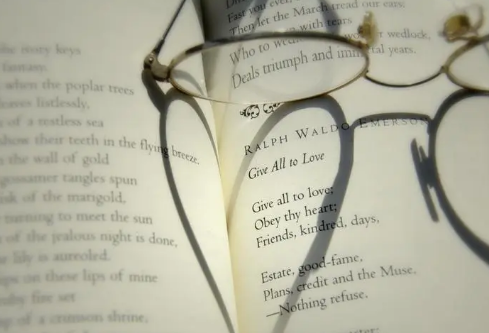 ivory keys
fantasy.
when the poplar trees
leaves listlessly,
of a restless sea
show their teeth in the flying breeze.
the wall of gold
gossamer tangles spun
of the marigold,
morning to meet the sun
of the jealous night is done,
lily is aureoled.
on these lips of mine
fire set
of a crimson shrine.
Fast you
Then let the March tread our ears:
with tears
Who to wedlock,
Deals triumph and immortal years.
RALPH WALDO EMERSON
Give All to Love
Give all to love:
Obey thy heart;
Friends, kindred, days,
Estate, good-fame,
Plans, credit and the Muse.
—Nothing refuse.